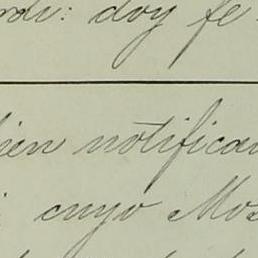 rdi: doy fe
ien notifica
cuyo Mo